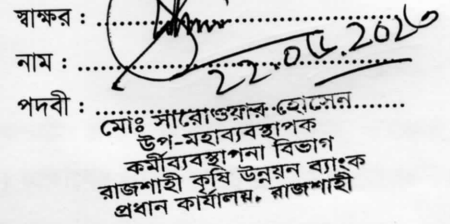 স্বাক্ষর :
22.05.2026
নাম :
পদবী :
মোঃ সারোওয়ার হোসেন
উপ-মহাব্যবস্থাপক
কর্মীব্যবস্থাপনা বিভাগ
রাজশাহী কৃষি উন্নয়ন ব্যাংক
প্রধান কার্যালয়, রাজশাহী